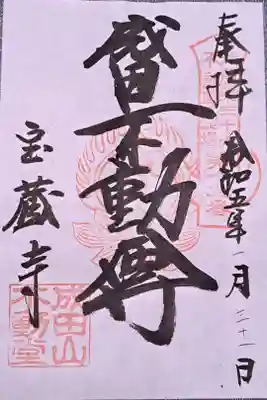 奉拝
令和五年一月三十一日
成田不動尊
宝蔵寺
成田山
不動堂